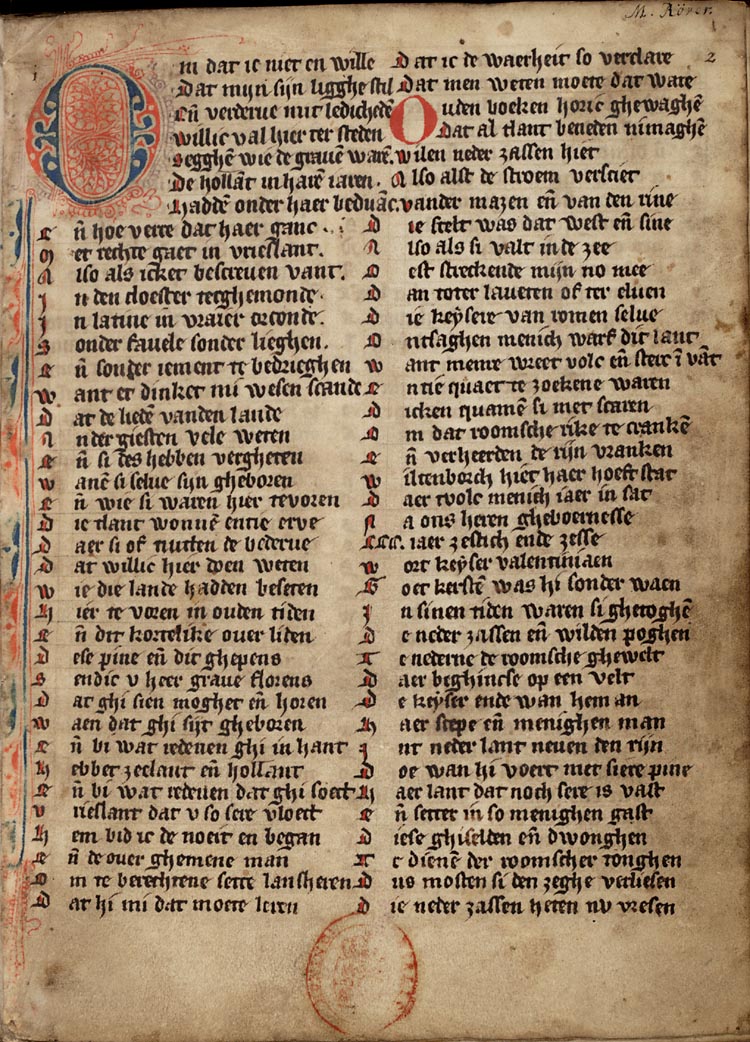 M. Röver.
1
Om dat ic niet en wille
Dat mijn sijn ligghe stil
Eñ verderue mit ledichede
Willic val hier ter steden
Segghē wie de grauen warē
De hollāt in harē iaren
Hadden onder haer beduāc
Eñ hoe verre dat haer ganc
Met rechte gaet in vrieslant.
Also als icket bescreuen vant.
In den cloester teeghemonde
In latine in vraier orconde.
Sonder fauele sonder lieghen.
Eñ sonder iement te bedrieghen
Want et dinket mi wesen scande
Dat de liedē vanden lande
Ander giesten vele weten
Eñ si des hebben vergheten
Wanē si selue sijn gheboren
Eñ wie si waren hier te voren
Die tlant wonnē entie erue
Daer si of nutten de bederue
Dat willic hier doen weten
Wie die lande hadden beseten
Hier te voren in ouden tiden
Eñ dit kortelike ouer liden
Dese pine eñ dit ghepens
Sendic v heer graue florens
Dat ghi sien moghet eñ horen
Waen dat ghi sijt gheboren
Eñ bi wat redenen ghi in hant
Hebbet zeelant eñ hollant
Eñ bi wat redenen dat ghi soect
Vrieslant dat v so sere vloect
Hem bid ic de noeit en began
Eñ de ouer ghemene man
Om te berechtene sette lansheren
Dat hi mi dat moete leren
2
Dat ic de waerheit so verclare
Dat men weten moete dat ware
Ouden boeken horic ghewaghē
Dat al tlant beneden nimaghē
Wilen neder zassen hiet
Also alst de stroem versciet
Vander mazen eñ van den rine
Die scelt was dat west eñ sine
Also als si valt in de zee
Oest streckende mijn no mee
Dan toter lauecen of ter eluen
Die keysere van romen selue
Ontsaghen menich warf dit lant
Want menre wreet volc eñ sterc ī vāt
Entie quaet te zoekene waren
Dicken quamē si met scaren
Om dat roomsche rike te crankē
Eñ verheerden de rijn vranken
Wiltenborch hiet haer hoeft stat
Daer tvolc menich iaer in sat
Na ons heren gheboernesse
CCC. iaer zestich ende zesse
Wort keyser valentiniaen
Goet kerstē was hi sonder waen
In sinen tiden waren si ghetoghē
De neder zassen eñ wilden poghen
Te nederne de roomsche ghewelt
Daer beghincse op een velt
De keyser ende wan hem an
Haer scepe eñ menighen man
Int neder lant neuen den rijn
Doe wan hi voert met siere pine
Haer lant dat noch sere is vast
Eñ settet in so menighen gast
Diese ghiselden eñ dwonghen
Te dienē der roomscher tonghen
Dus mosten si den zeghe verliesen
Die neder zassen heten nv vresen